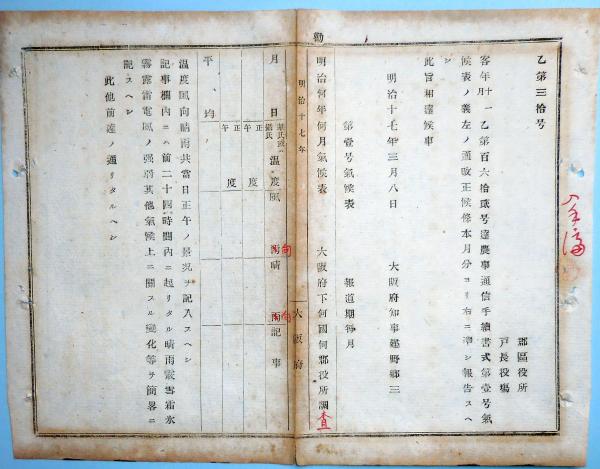 勸
乙第三拾号
郡區役所
戸長役塲
客年十一月乙第百六拾貳号達農事通信手續書式第壹号氣
候表ノ義左ノ通改正候條本月分ヨリ右ニ凖シ報告スヘ
シ
此旨相達候事
明治十七年三月八日
大阪府知事建野郷三
第壹号氣候表
報道期毎月
明治何年何月氣候表
大阪府下何國何郡役所調査
明治十七年
大阪府
月日
華氏或ハ
攝氏
温度
風向
晴雨
記事
正午 度
正午 度
平均
温度風向晴雨共當日正午ノ景况ヲ記入スヘシ
記事欄内ニハ前二十四時間内ニ起リタル晴雨霰雪霜氷
霧露雷電風ノ强弱其他氣候上ニ關スル變化等ヲ簡畧ニ
記スヘシ
此他前達ノ通リタルヘシ